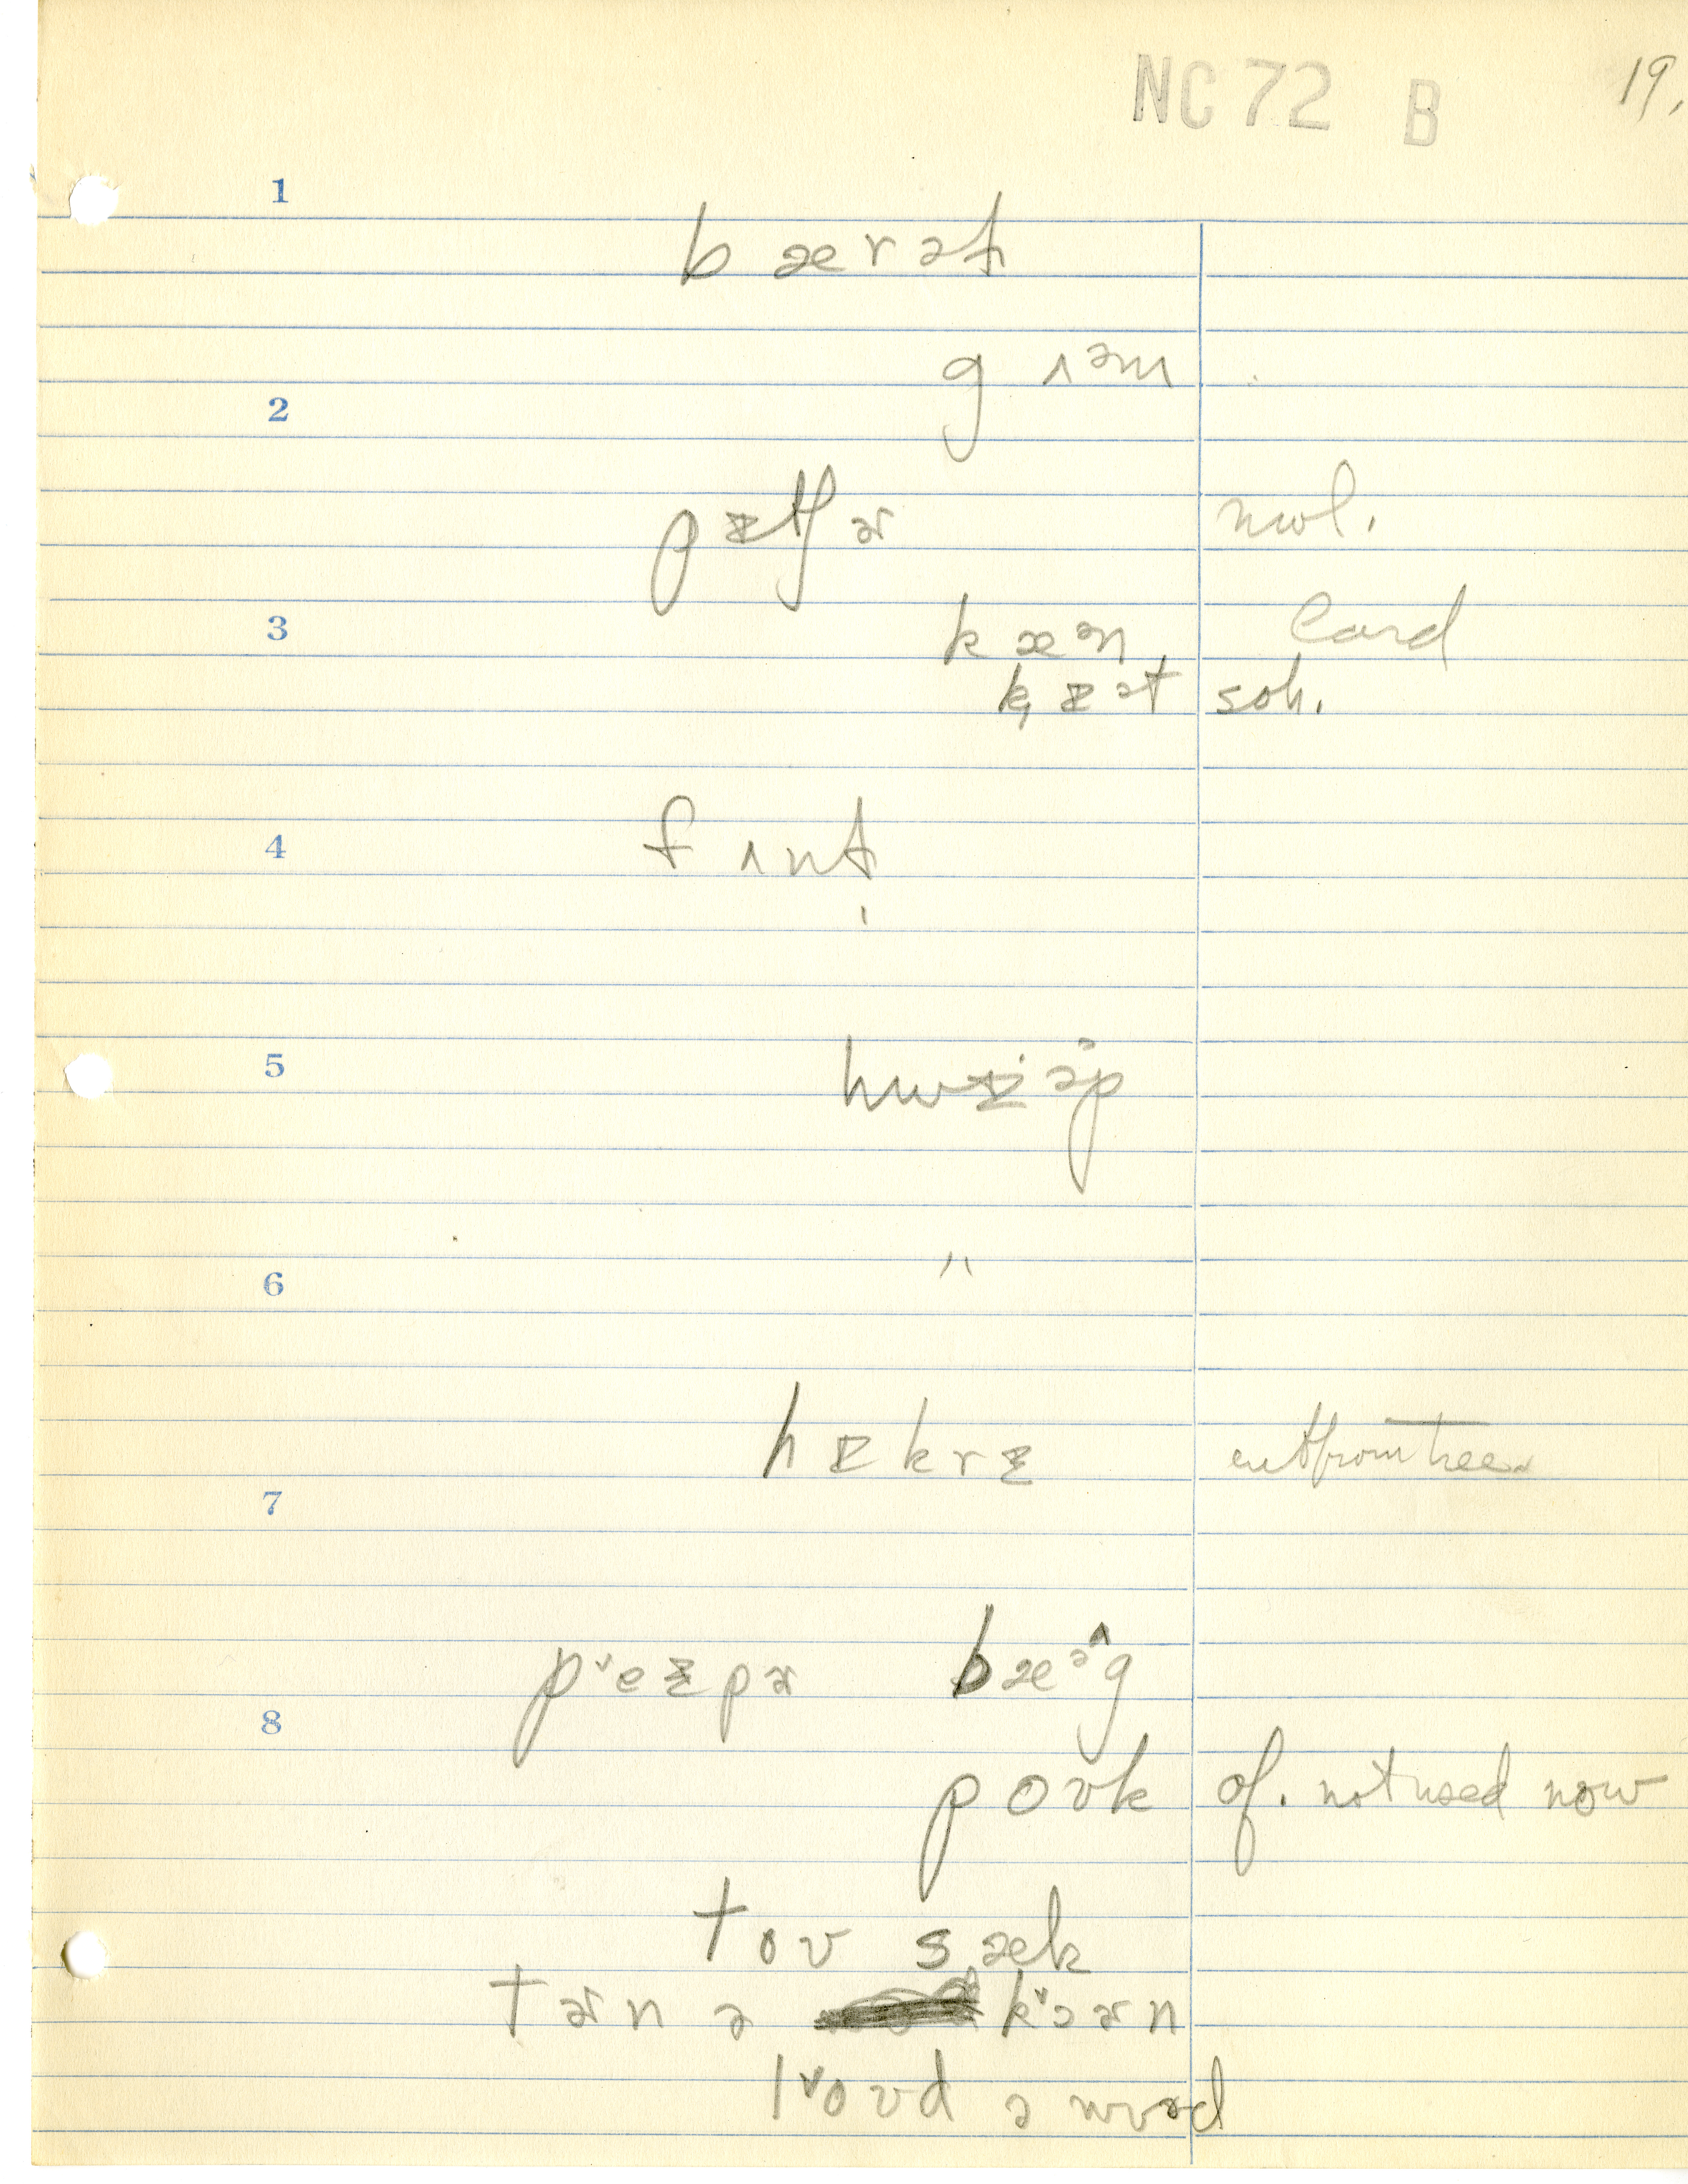 NC 72 B 19.
1
b æ r ə t
g ʌəm
2
p ɪtʃ ɚ nwl.
3 k æ ə n Lard
k̟ ɪ ə t soh.
4 f ʌ n t
5 hwɪəp
6 "
h ɪ k r ɪ cut from tree
7
p˅eɪpɚ bæəˆg
8
p oʊk of. not used now
t oʊ s æk
t ɚ n ə k˅ɔɚn
l˅oʊd ə wʊəd